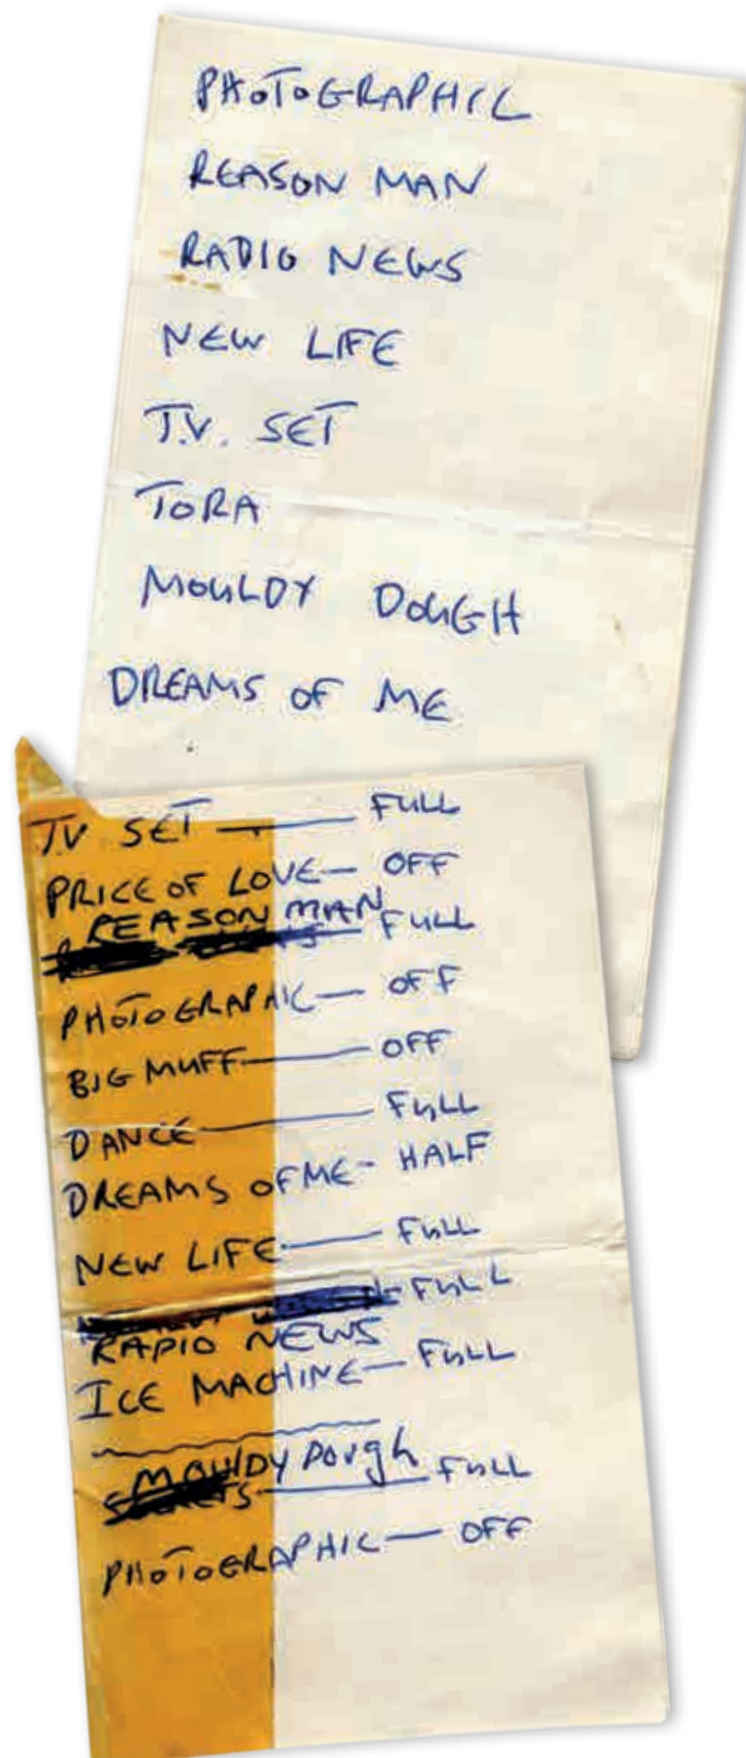 PHOTOGRAPHIC
REASON MAN
RADIO NEWS
NEW LIFE
T.V. SET
TORA
MOULDY DOUGH
DREAMS OF ME
TV SET — FULL
PRICE OF LOVE — OFF
REASON MAN
— FULL
PHOTOGRAPHIC — OFF
BIG MUFF — OFF
DANCE — FULL
DREAMS OF ME - HALF
NEW LIFE — FULL
- FULL
RADIO NEWS
ICE MACHINE — FULL
MOULDY DOUGH
— FULL
PHOTOGRAPHIC — OFF